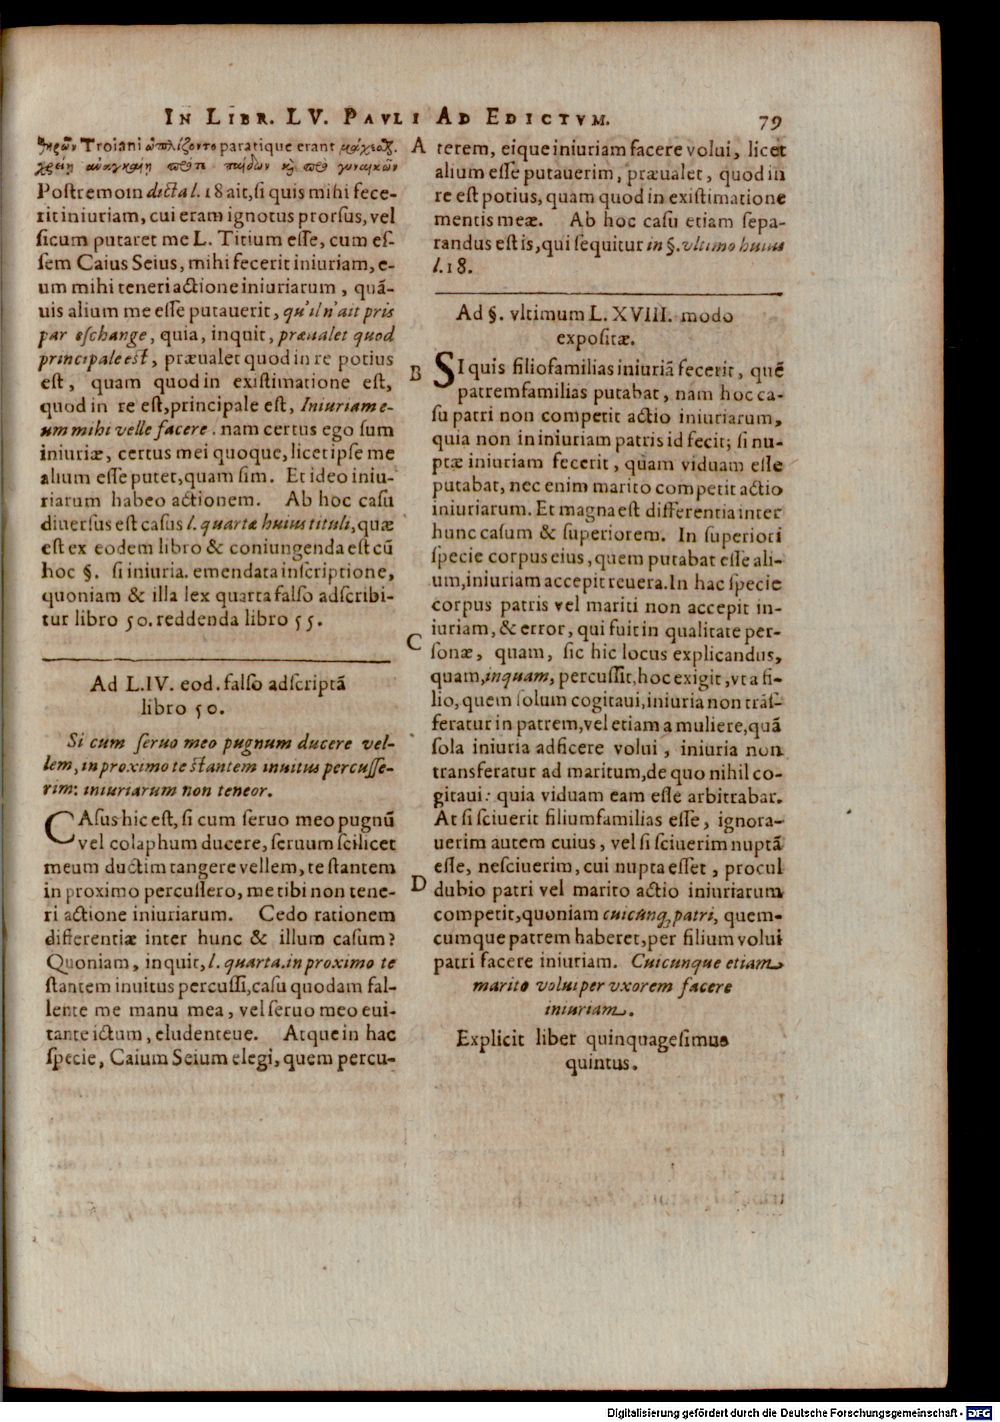 IN LIBR. LV. PAVLI AD EDICTVM. 79
Troiani ὡπλίζοντο paratique erant μάχεσθ.
χρείῃ ἀναγκαίῃ πρό τε παίδων καὶ πρὸ γυναικῶν
Postremo in dicta l. 18 ait, si quis mihi fece-
rit iniuriam, cui eram ignotus prorsus, vel
sicum putaret me L. Titium esse, cum es-
sem Caius Seius, mihi fecerit iniuriam, e-
um mihi teneri actione iniuriarum, quã-
uis alium me esse putauerit, qu'il n'ait pris
par eschange, quia, inquit, præualet quod
principale est, præualet quod in re potius
est, quam quod in existimatione est,
quod in re est, principale est, Iniuriam e-
um mihi velle facere. nam certus ego sum
iniuriæ, certus mei quoque, licet ipse me
alium esse putet, quam sim. Et ideo iniu-
riarum habeo actionem. Ab hoc casu
diuersus est casus l. quarta huius tituli, quæ
est ex eodem libro & coniungenda est cũ
hoc §. si iniuria. emendata inscriptione,
quoniam & illa lex quarta falso adscribi-
tur libro 50. reddenda libro 55.
Ad L. IV. eod. falso adscriptã
libro 50.
Si cum seruo meo pugnum ducere vel-
lem, in proximo te stantem inuitus percusse-
rim: iniuriarum non teneor.
CAsus hic est, si cum seruo meo pugnũ
vel colaphum ducere, seruum scilicet
meum ductim tangere vellem, te stantem
in proximo percussero, me tibi non tene-
ri actione iniuriarum. Cedo rationem
differentiæ inter hunc & illum casum?
Quoniam, inquit, l. quarta. in proximo te
stantem inuitus percussi, casu quodam fal-
lente me manu mea, vel seruo meo eui-
tante ictum, eludenteue. Atque in hac
specie, Caium Seium elegi, quem percu-
A terem, eique iniuriam facere volui, licet
alium esse putauerim, præualet, quod in
re est potius, quam quod in existimatione
mentis meæ. Ab hoc casu etiam sepa-
randus est is, qui sequitur in §. vltimo huius
l. 18.
Ad §. vltimum L. XVIII. modo
expositæ.
B SI quis filiofamilias iniuriã fecerit, quẽ
patremfamilias putabat, nam hoc ca-
su patri non competit actio iniuriarum,
quia non in iniuriam patris id fecit; si nu-
ptæ iniuriam fecerit, quam viduam esse
putabat, nec enim marito competit actio
iniuriarum. Et magna est differentia inter
hunc casum & superiorem. In superiori
specie corpus eius, quem putabat esse ali-
um, iniuriam accepit reuera. In hac specie
corpus patris vel mariti non accepit in-
iuriam, & error, qui fuit in qualitate per-
C sonæ, quam, sic hic locus explicandus,
quam, inquam, percussit, hoc exigit, vt a fi-
lio, quem solum cogitaui, iniuria non trãs-
feratur in patrem, vel etiam a muliere, quã
sola iniuria adficere volui, iniuria non
transferatur ad maritum, de quo nihil co-
gitaui: quia viduam eam esse arbitrabar.
At si sciuerit filiumfamilias esse, ignora-
uerim autem cuius, vel si sciuerim nuptã
esse, nesciuerim, cui nupta esset, procul
D dubio patri vel marito actio iniuriarum
competit, quoniam cuicũnq; patri, quem-
cumque patrem haberet, per filium volui
patri facere iniuriam. Cuicunque etiam
marito volui per vxorem facere
iniuriam.
Explicit liber quinquagesimus
quintus.
Digitalisierung gefördert durch die Deutsche Forschungsgemeinschaft - DFG